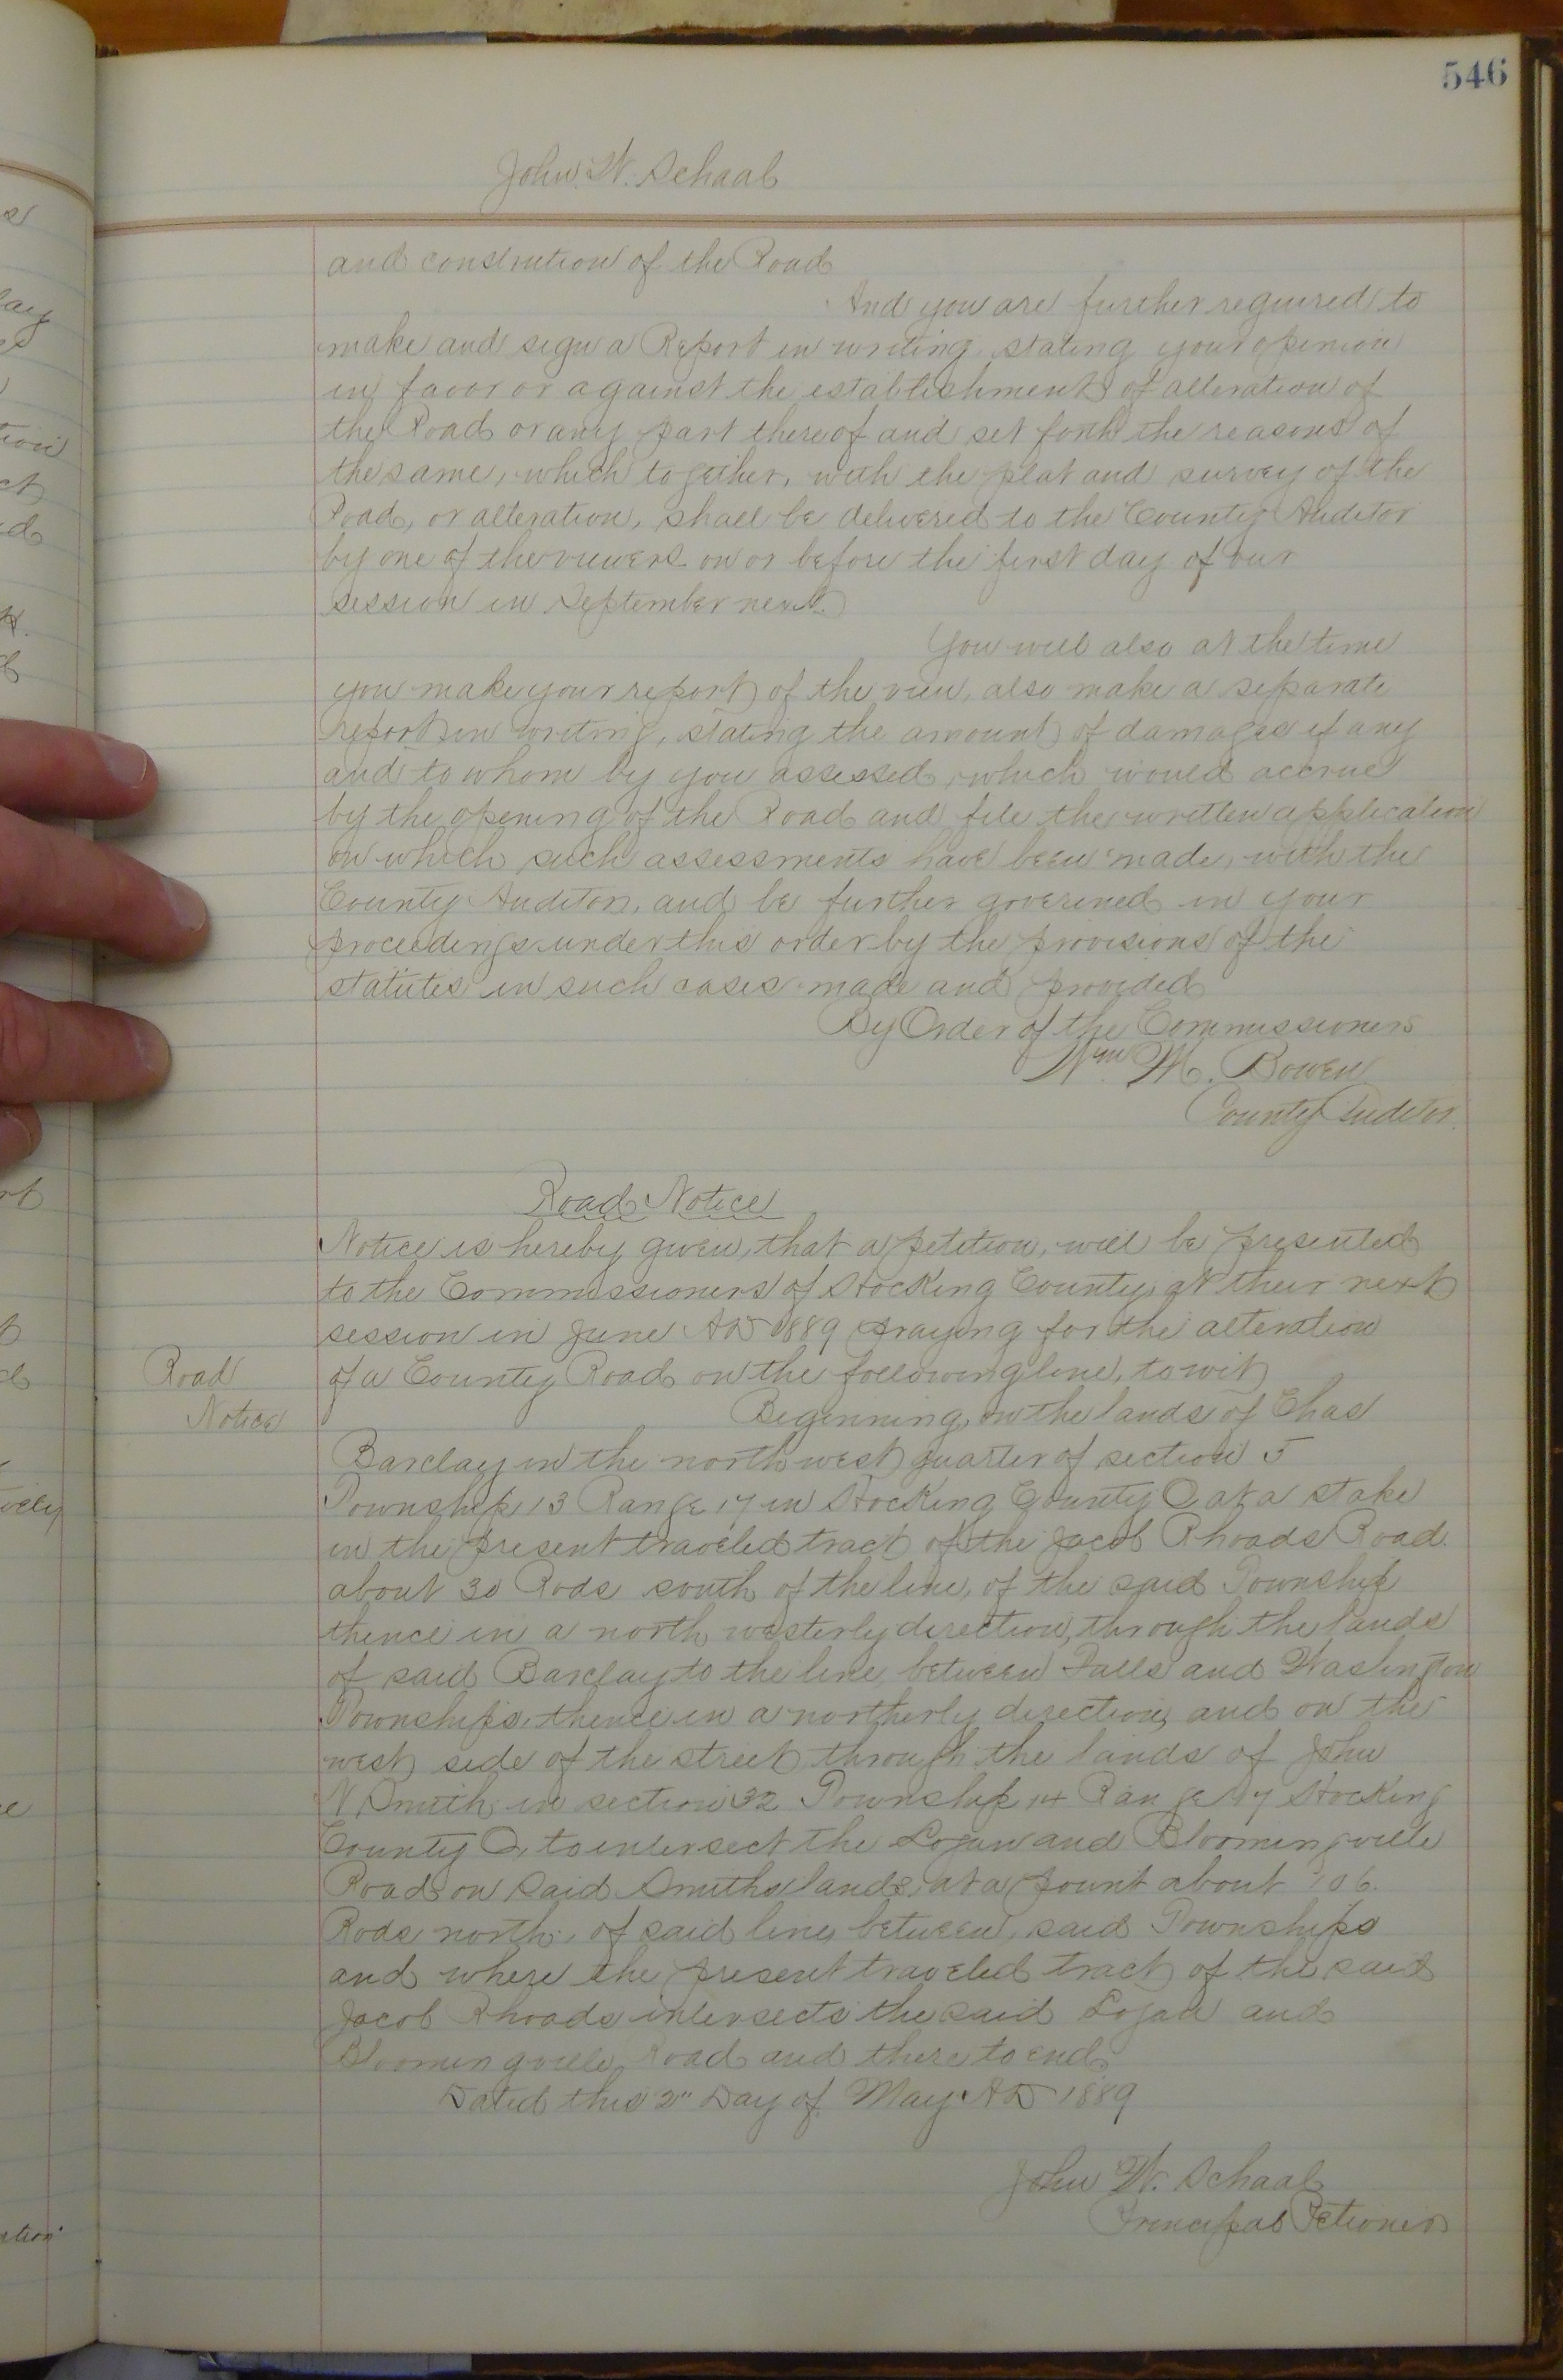 546
John W. Schaal
and constrution of the Road
And you are further required to
make and sign a Report in writing stating your opinion
in favor or against the establishment of alteration of
the Road or any part thereof and set forth the reasons of
the same, which together, with the plat and survey of the
Road, or alteration, shall be delivered to the County Auditor
by one of the viewers on or before the first day of our
session in September next.
You will also at the time
you make your report of the view, also make a separate
report in writing, stating the amount of damages if any
and to whom by you assessed, which would accrue
by the opening of the Road and file the written application
on which such assessments have been made, with the
County Auditor, and be further goverened in your
proceedings under this order by the provisions of the
statutes in such cases made and provided
By Order of the Commissioners
Wm M. Bowen
County Auditor.
Road Notice
Notice is hereby given, that a petition, will be presented
to the Commissioners of Hocking County, at their next
session in June AD 1889 praying for the alteration
Road
of a County Road on the following line, to wit
Notice
Beginning on the lands of Chas
Barclay in the north west quarter of section 5
Township 13 Range 17 in Hocking County O at a stake
in the present traveled tract of the Jacob Rhoads Road.
about 30 Rods south of the line, of the said Township
thence in a north westerly direction, through the lands
of said Barclay to the line, between Falls and Washington
Townships, thence in a northerly direction, and on the
west side of the street through the lands of John
N. Smith in section 32 Township 14 Range 17 Hocking
County O, to intersect the Logan and Bloomingville
Road on said Smiths lands, at a point about 106.
Rods north, of said line, between, said Townships
and where the present traveled tract of the said
Jacob Rhoads intersects the said Logan and
Bloomingville Road and there to end,
Dated this 2" Day of May AD 1889
John W. Schaal
Principal Petioner